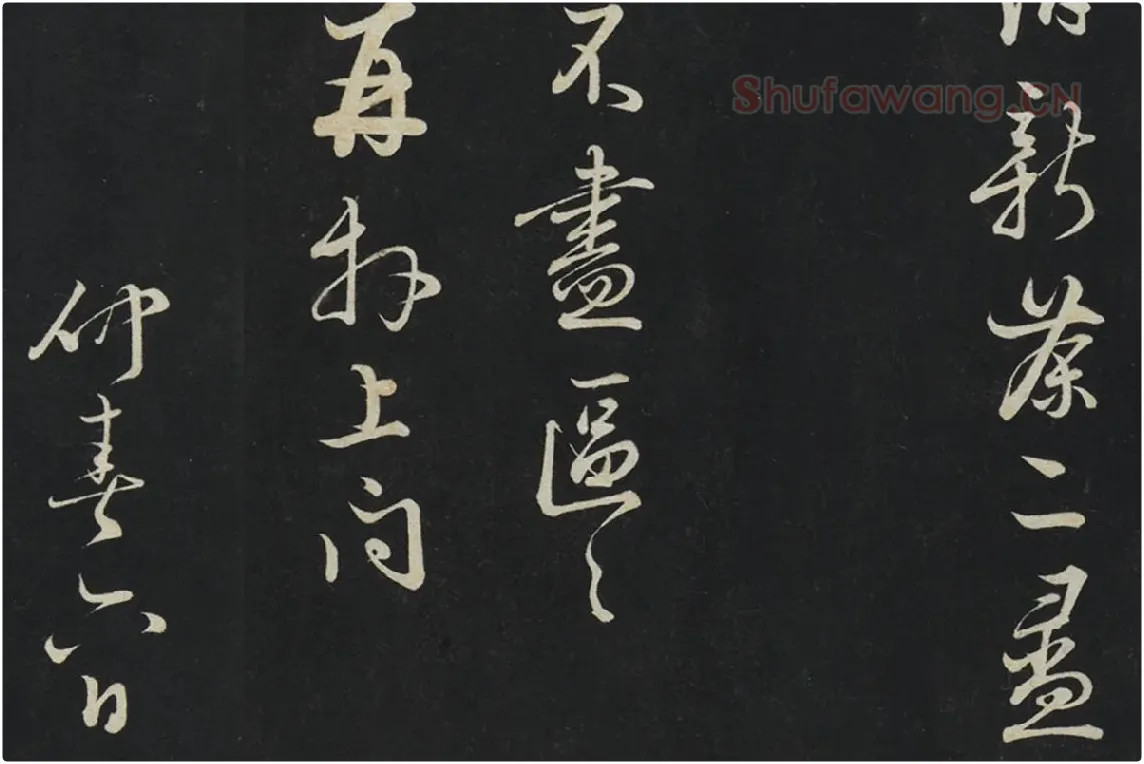 新茶二
不盡區〻
再拜上問
仲春六日
Shufawang.CN